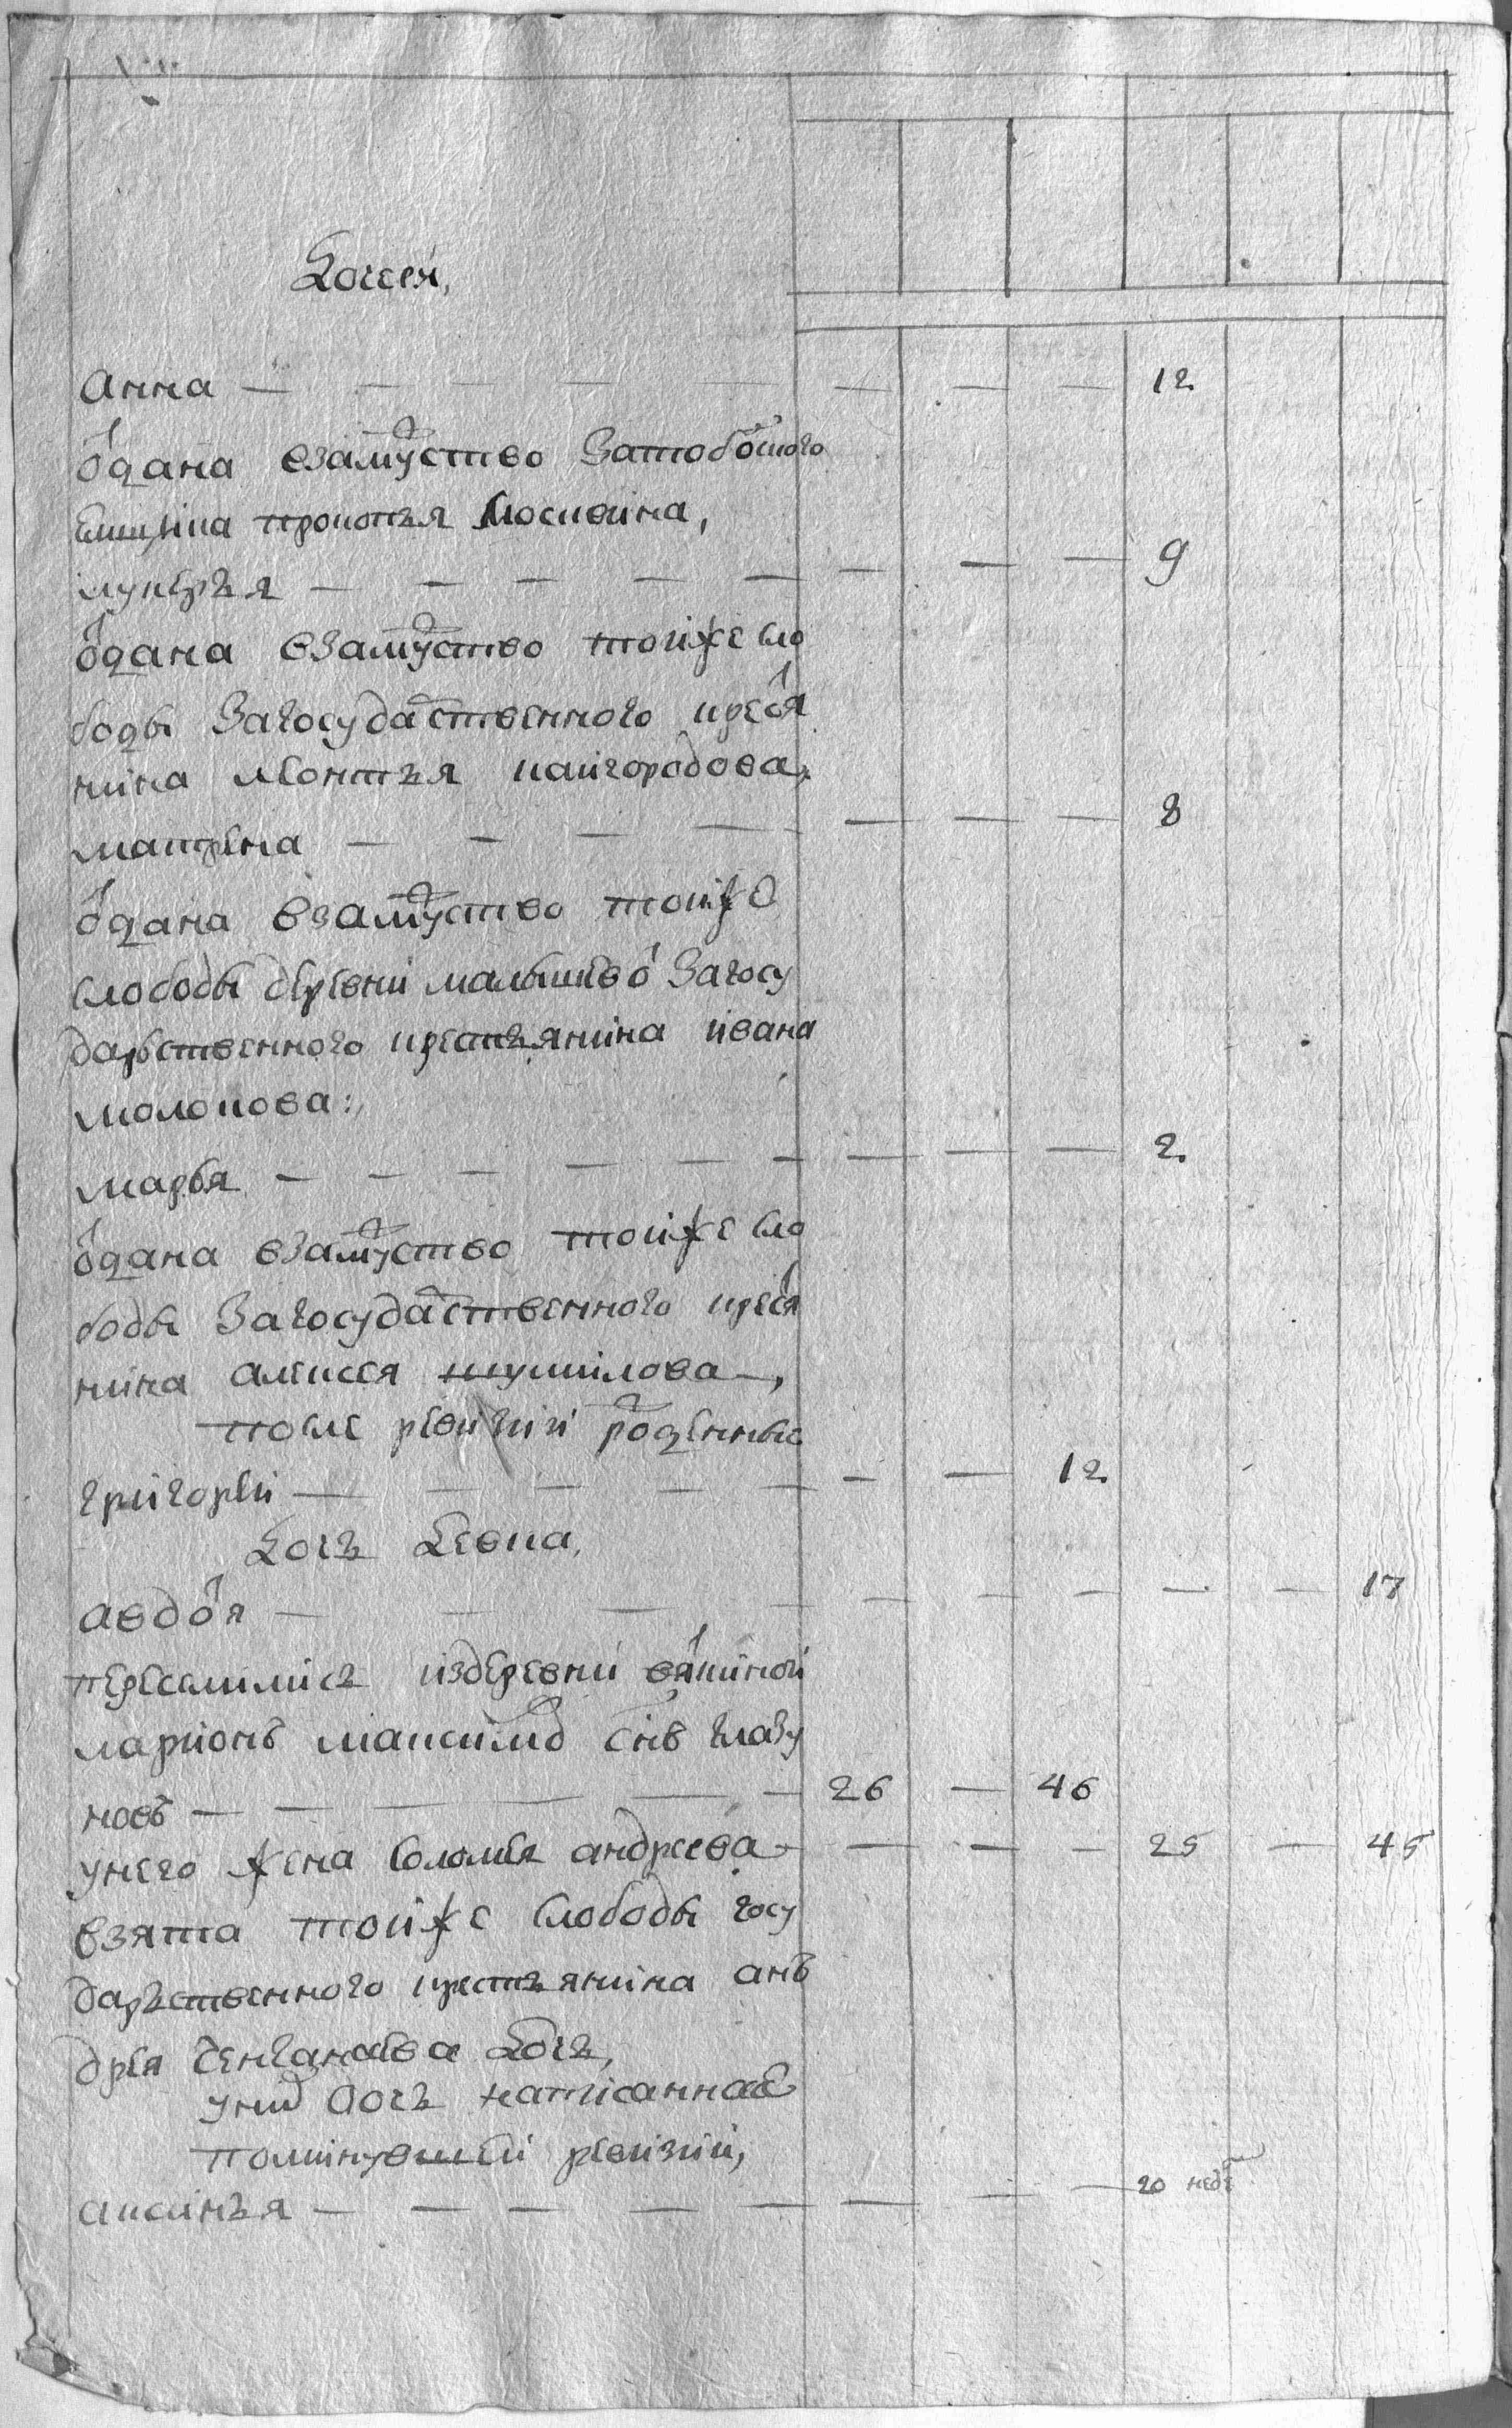 Дочеѝ,
Анна — — — — — — — — 12
о̾дана взаму̾ство Затобо̾ного
Ямщика прокопья Москвина,
лукерья — — — — — — — — 9
о̾дана взаму̾ство тойже сло
боды Загосуда̾ственного крес̾я
нина леонтья кайгородова,
матрена — — — — — — — 8
о̾дана взаму̾ство тойже
слободы деревни малышево̾ Загосу
дарственного крестьянина ивана
молокова:
марья — — — — — — — — — 2
о̾дана взаму̾ство тойже сло
боды Загосуда̾ственного крес̾я
нина алексея шумилова,
после ревизии ро̾денные
григореи — — — — — — — 12
Дочь Девка,
авдо̾я — — — — — — — — — 17
переселились издеревни вя̾киной
ларионъ максимо снъ глазу
новъ — — — — — — 26 — 46
унего жена Соломея андреева — — — — 25 — 45
взята тойже слободы госу
дарственного крестьянина анъ
дрея дочь,
уних Дочь написанная
поминувшей ревизии,
аксинья — — — — — — — — 20 неде